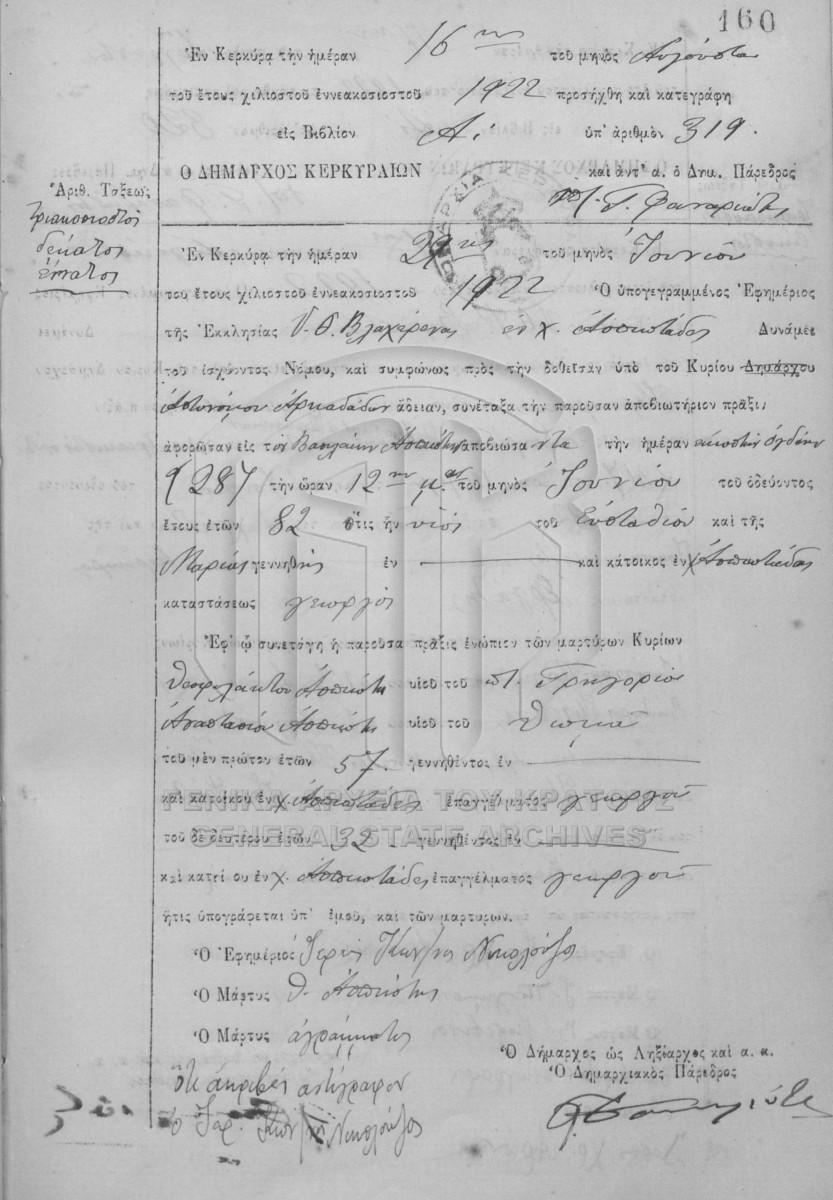 160
Ἐν Κερκύρᾳ τὴν ἡμέραν 16ης τοῦ μηνὸς Αὐγούστου
τοῦ ἔτους χιλιοστοῦ ἐννεακοσιοστοῦ 1922 προσήχθη καὶ κατεγράφη
εἰς Βιβλίον Α. ὑπ' ἀριθμὸν 319.
Ο ΔΗΜΑΡΧΟΣ ΚΕΡΚΥΡΑΙΩΝ καὶ ἀντ' α. ὁ Δημ. Πάρεδρος
Ἀριθ. Τάξεως
τριακοσιοστὸς
δέκατος
ἔννατος
Ἐν Κερκύρᾳ τὴν ἡμέραν 29ης τοῦ μηνὸς Ἰουνίου
τοῦ ἔτους χιλιοστοῦ ἐννεακοσιοστοῦ 1922 Ὁ ὑπογεγραμμένος Ἐφημέριος
τῆς Ἐκκλησίας Υ. Θ. Βλαχέρενας ἐν χ. Ἀσπιωτάδες Δυνάμει
τοῦ ἰσχύοντος Νόμου, καὶ συμφώνως πρὸς τὴν δοθεῖσαν ὑπὸ τοῦ Κυρίου Δημάρχου
Ἀστυνόμου Ἀρκαδάδων ἄδειαν, συνέταξα τὴν παροῦσαν ἀποβιωτήριον πρᾶξιν
ἀφορῶσαν εἰς τὸν Βασιλάκην Ἀσπιώτην ἀποβιώσαντα τὴν ἡμέραν εἰκοστὴν ὀγδόην
28ην τὴν ὥραν 12ην μ. τοῦ μηνὸς Ἰουνίου τοῦ ὁδεύοντος
ἔτους ἐτῶν 82 ὅστις ἦν υἱὸς τοῦ Εὐσταθίου καὶ τῆς
Μαρίας γεννηθεὶς ἐν καὶ κάτοικος ἐν χ Ἀσπιωτάδες
καταστάσεως γεωργὸς
Ἐφ' ᾧ συνετάγη ἡ παροῦσα πρᾶξις ἐνώπιον τῶν μαρτύρων Κυρίων
Θεοφιλάκτου Ἀσπιώτη υἱοῦ τοῦ π. Γρηγορίου
Ἀναστασίου Ἀσπιώτη υἱοῦ τοῦ Θωμᾶ
τοῦ μὲν πρώτου ἐτῶν 57. γεννηθέντος ἐν
καὶ κατοίκου ἐν χ. Ἀσπιωτάδες ἐπαγγέλματος γεωργοῦ
ΓΕΝΙΚΑ ΑΡΧΕΙΑ ΤΟΥ ΚΡΑΤΟΥΣ
GENERAL STATE ARCHIVES
τοῦ δὲ δευτέρου ἐτῶν 32. γεννηθέντος ἐν
καὶ κατοίκου ἐν χ. Ἀσπιωτάδες ἐπαγγέλματος γεωργοῦ
ἥτις ὑπογράφεται ὑπ' ἐμοῦ, καὶ τῶν μαρτύρων.
Ὁ Ἐφημέριος Ἱερεὺς Κων/νος Νικολούζος
Ὁ Μάρτυς Θ. Ἀσπιώτης
Ὁ Μάρτυς ἀγράμματος
Ὁ Δήμαρχος ὡς Ληξίαρχος καὶ α. α.
Ὁ Δημαρχιακὸς Πάρεδρος
Ὅτι ἀκριβὲς ἀντίγραφον
ὁ Ἱερ. Κων/νος Νικολούζος